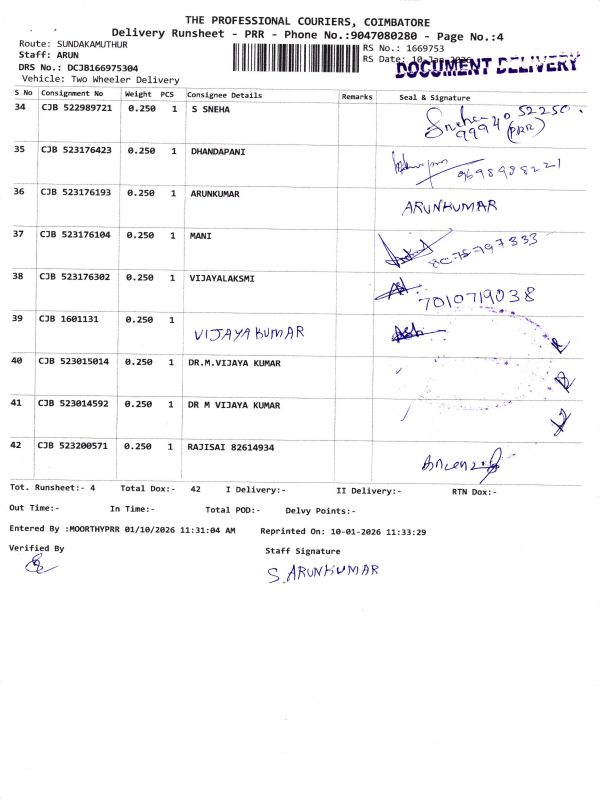 THE PROFESSIONAL COURIERS, COIMBATORE
Delivery Runsheet - PRR - Phone No.:9047080280 - Page No.:4
Route: SUNDAKAMUTHUR
RS No.: 1669753
Staff: ARUN
RS Date: 10 Jan 2026
DOCUMENT DELIVERY
DRS No.: DCJB166975304
Vehicle: Two Wheeler Delivery
S No Consignment No Weight PCS Consignee Details Remarks Seal & Signature
34 CJB 522989721 0.250 1 S SNEHA Sneha 99940 52250. (PRR)
35 CJB 523176423 0.250 1 DHANDAPANI 9698998221
36 CJB 523176193 0.250 1 ARUNKUMAR ARUNKUMAR
37 CJB 523176104 0.250 1 MANI 8075797333
38 CJB 523176302 0.250 1 VIJAYALAKSMI 7010719038
39 CJB 1601131 0.250 1 VIJAYAKUMAR
40 CJB 523015014 0.250 1 DR.M.VIJAYA KUMAR
41 CJB 523014592 0.250 1 DR M VIJAYA KUMAR
42 CJB 523200571 0.250 1 RAJISAI 82614934
Tot. Runsheet:- 4 Total Dox:- 42 I Delivery:- II Delivery:- RTN Dox:-
Out Time:- In Time:- Total POD:- Delvy Points:-
Entered By :MOORTHYPRR 01/10/2026 11:31:04 AM Reprinted On: 10-01-2026 11:33:29
Verified By Staff Signature
S. ARUNKUMAR